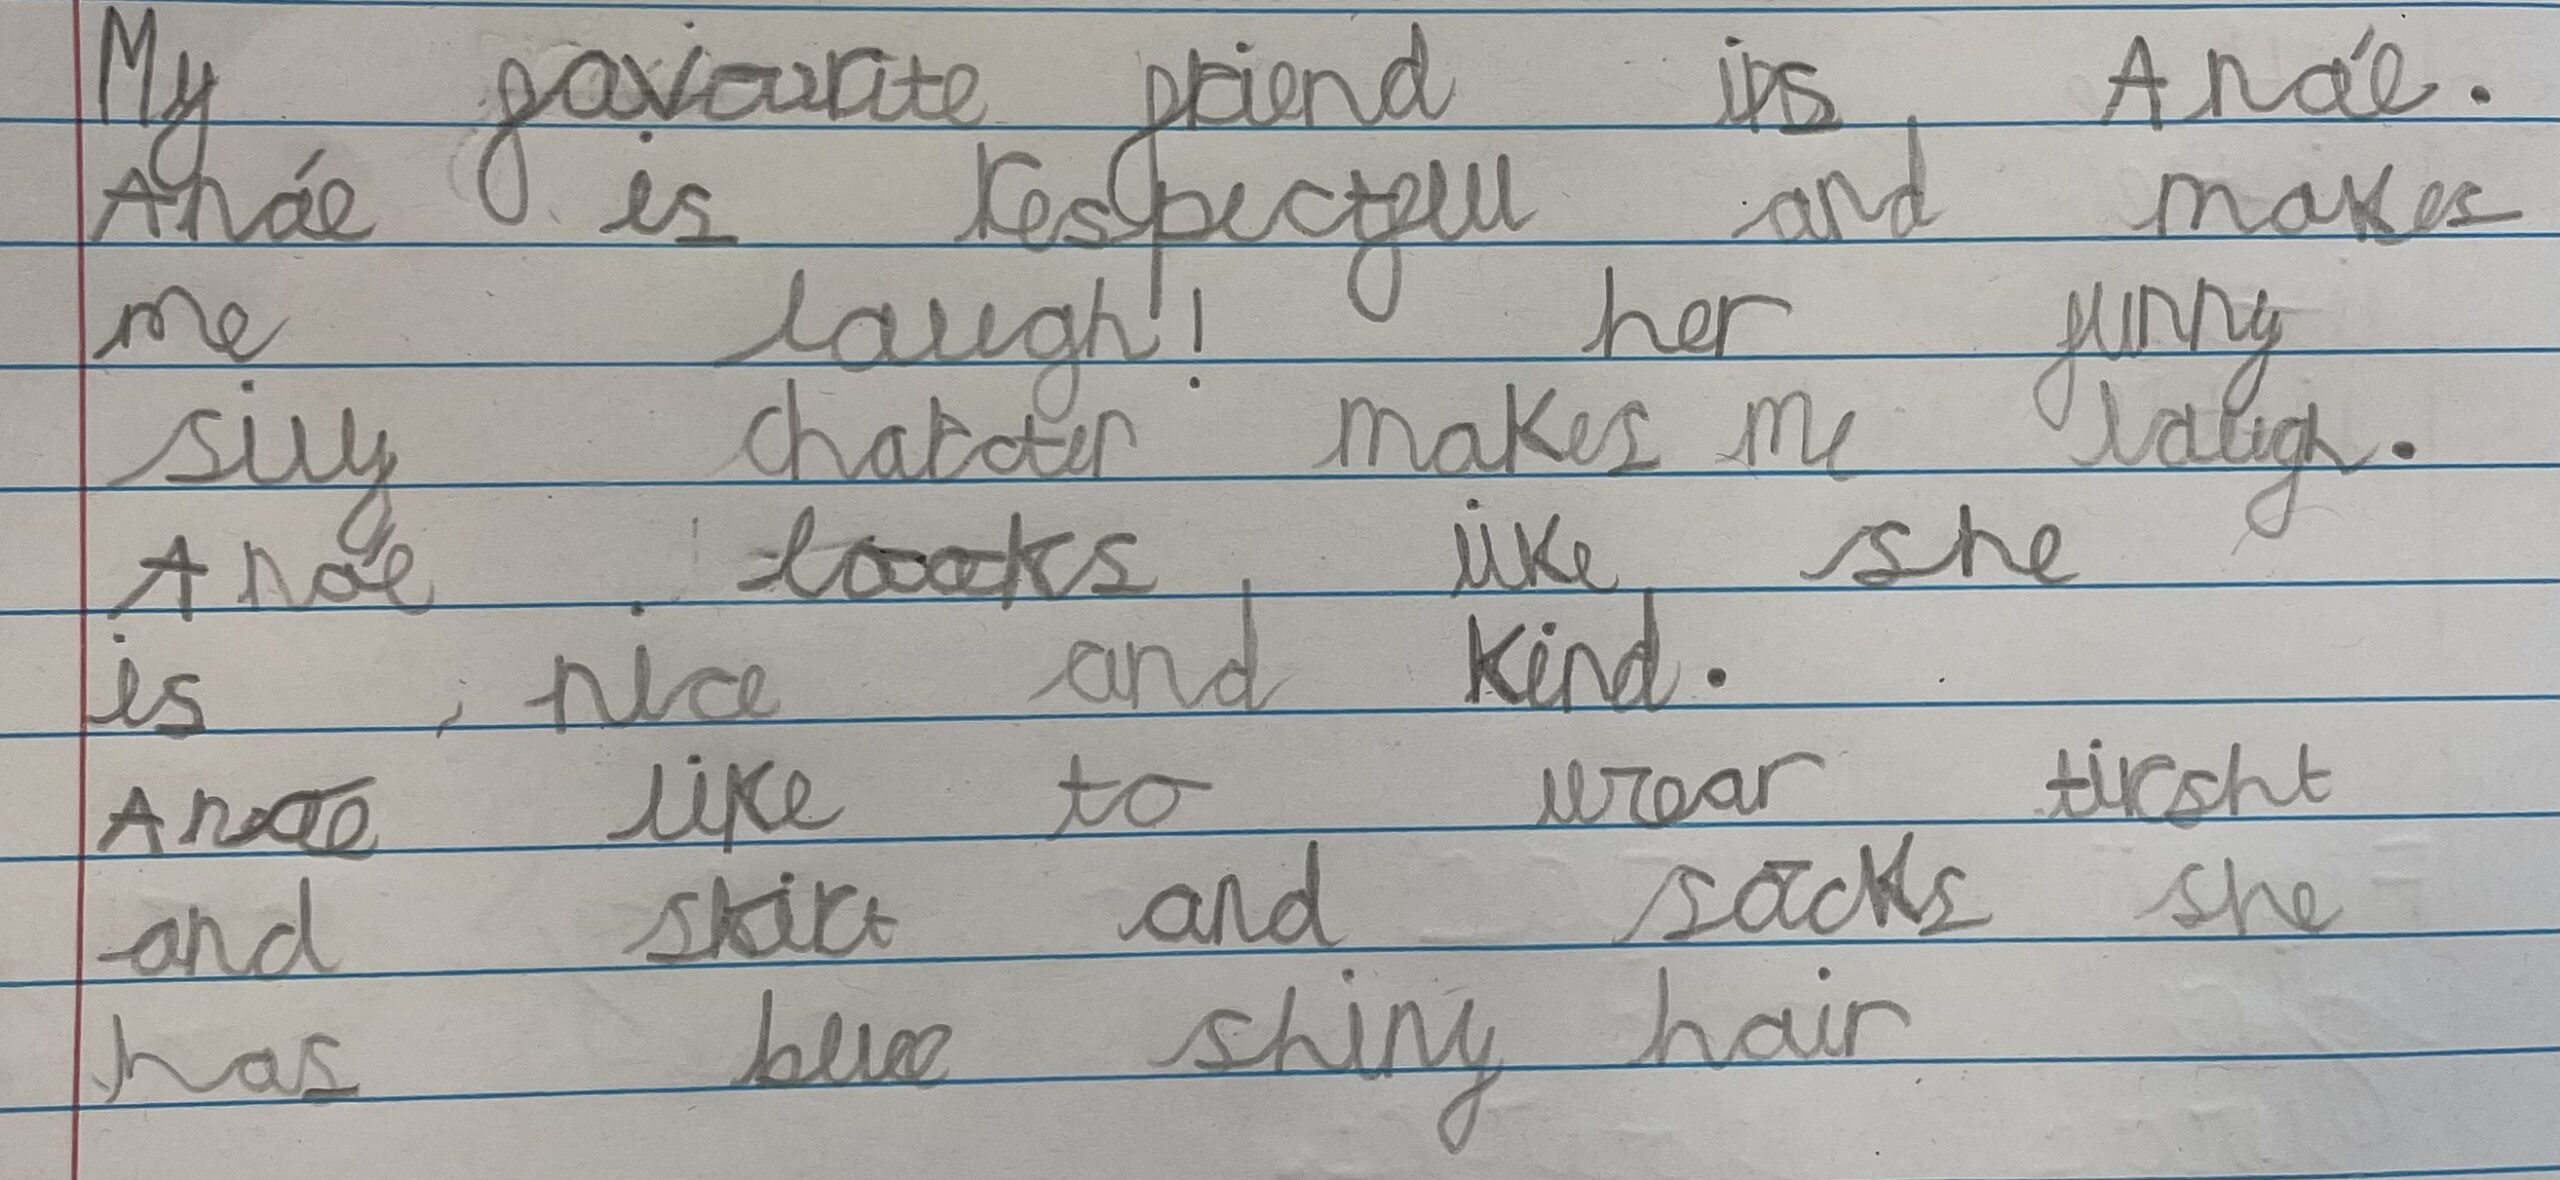 My faviourite friend is Anáe.
Anáe is respectfull and makes
me laugh! her funny
silly charater makes me laugh.
Anáe looks like she
is nice and kind.
Anáe like to wear tirsht
and skirt and sacks she
has blue shiny hair